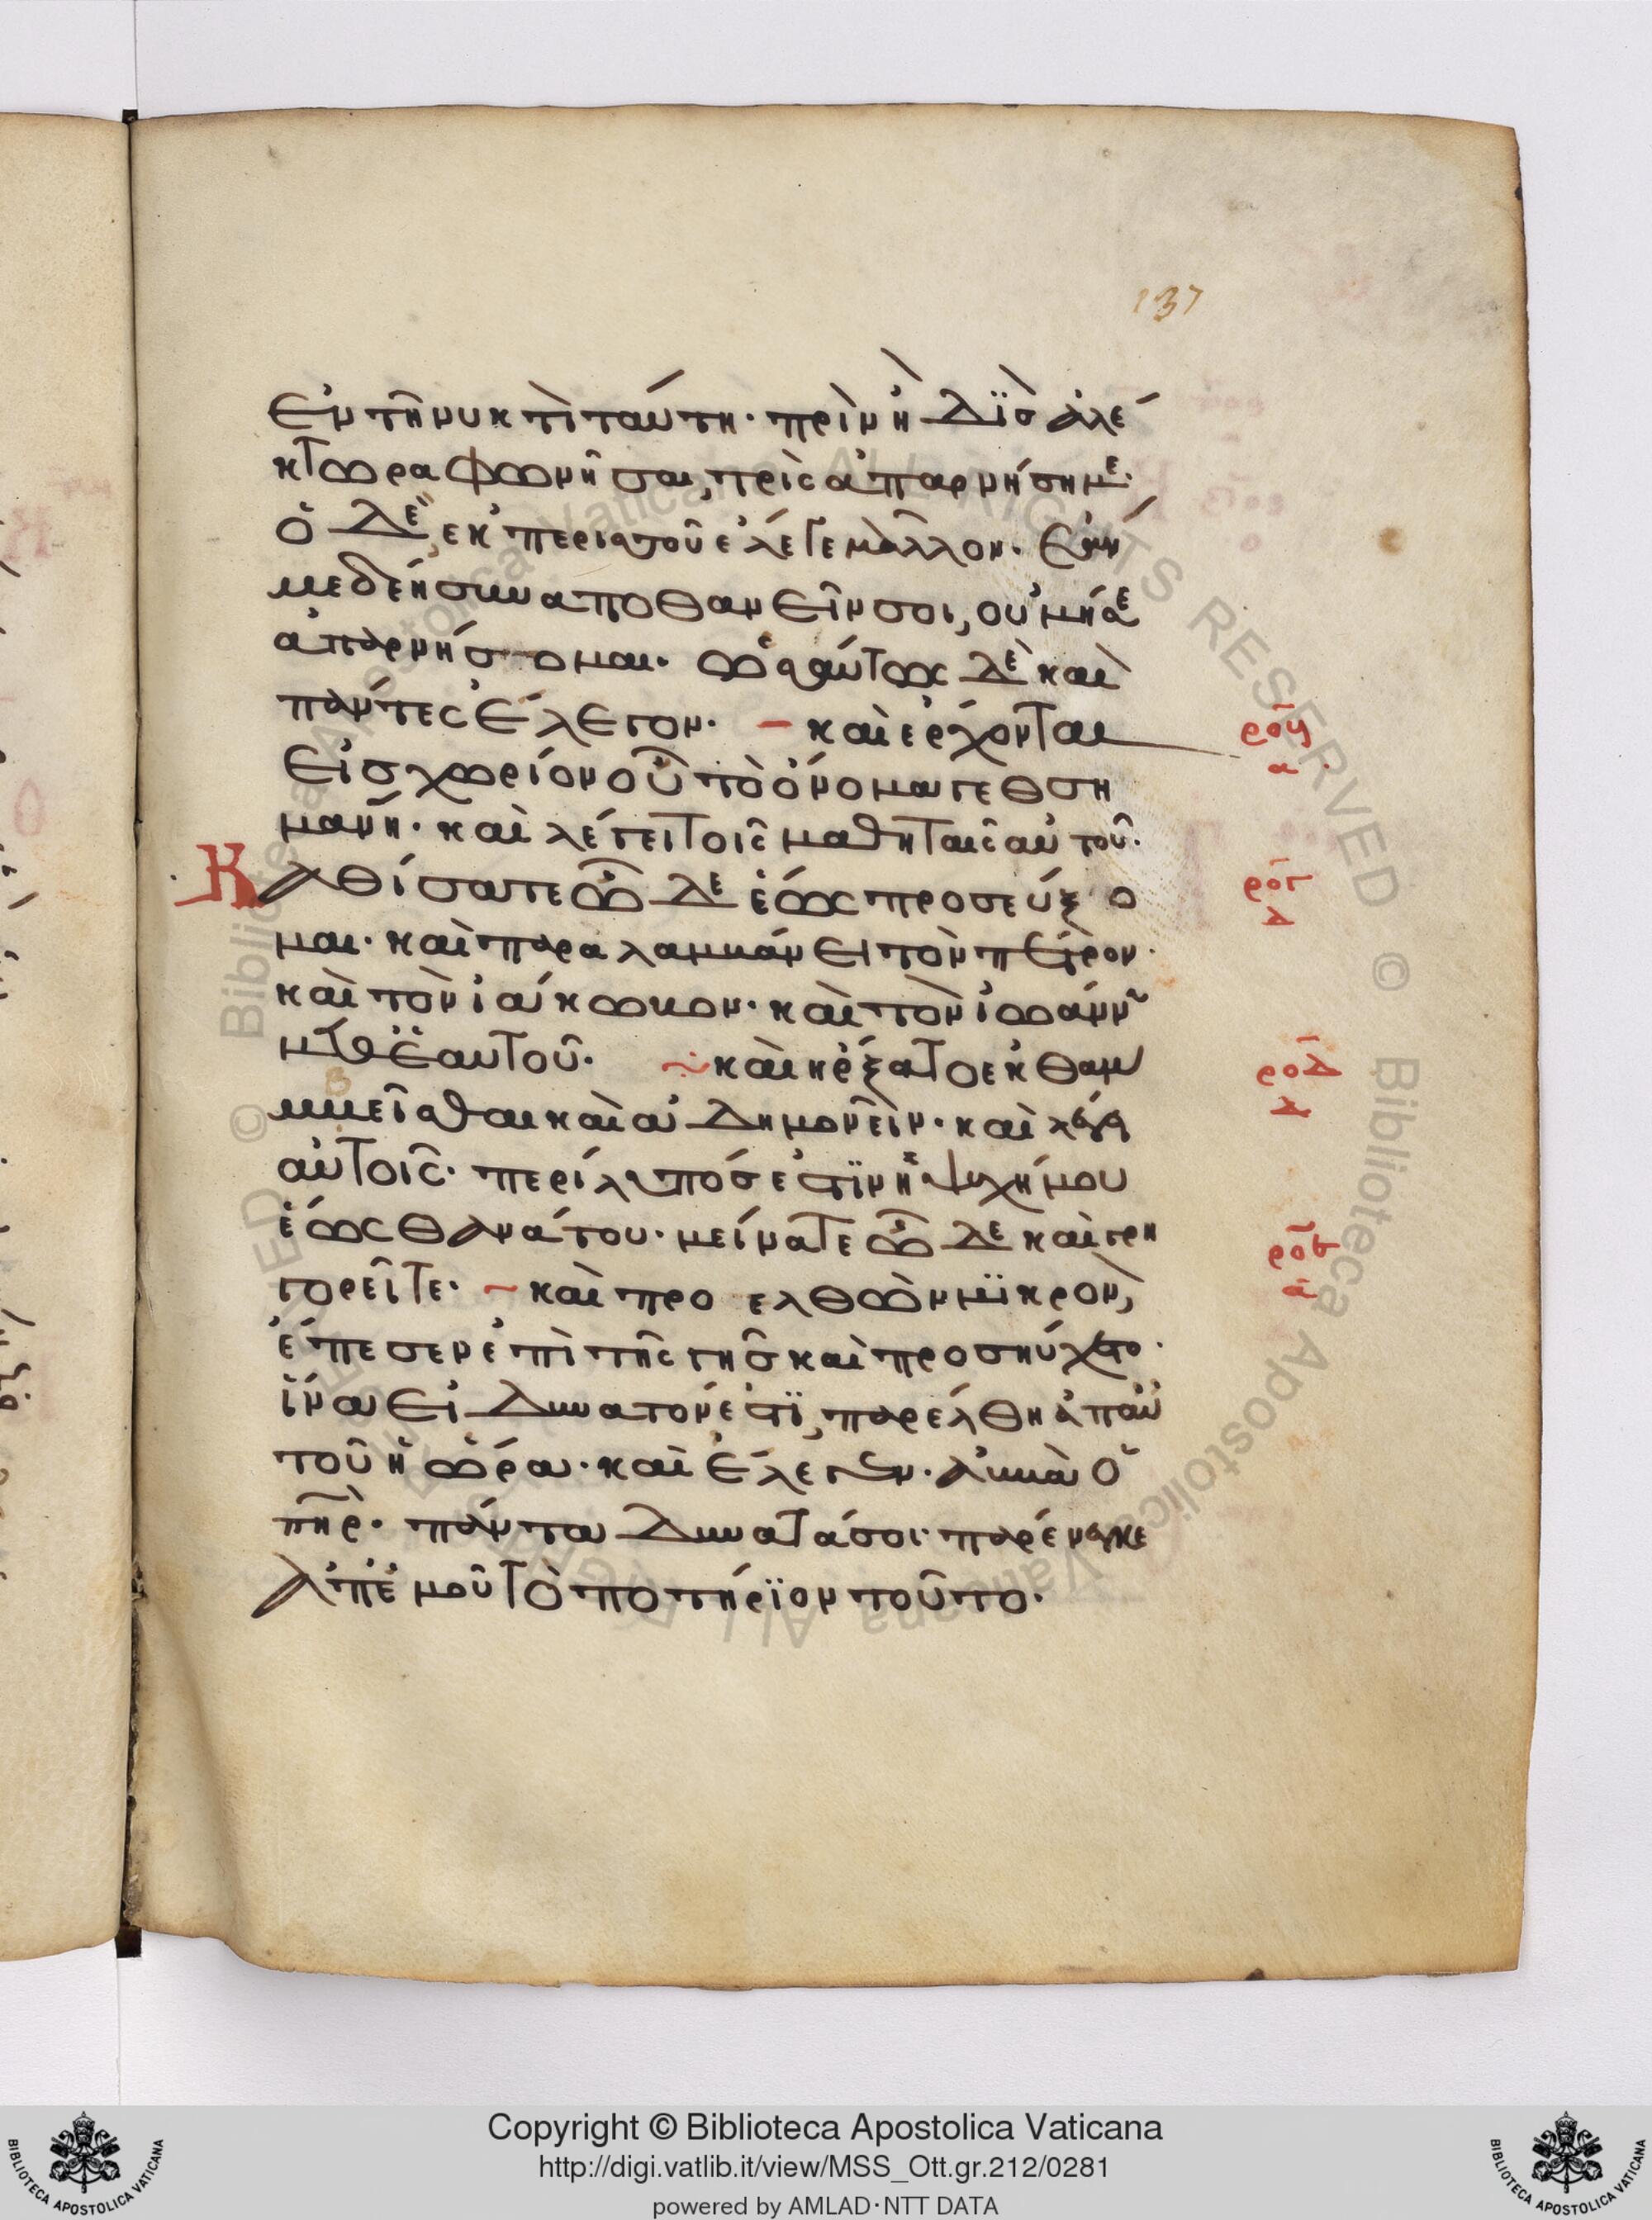 137
ἐν τῆ νυκτὶ ταύτη· πρὶν ἢ δὶς ἀλέ
κτωρα φωνῆσαι, τρὶς ἀπαρνήση με·
ὁ δὲ, ἐκ περισσοῦ ἔλεγε μᾶλλον· ἐάν
με δέη συναποθανεῖν σοι, οὐ μή σε
ἀπαρνήσομαι· ὡσαύτως δὲ καὶ
πάντες ἔλεγον· – καὶ ἔρχονται
εἰς χωρίον οὗ τὸ ὄνομα γεθση
μανῆ· καὶ λέγει τοῖς μαθηταῖς αὐτοῦ·
Καθίσατε ὧδε ἕως προσεύξο
μαι· καὶ παραλαμβάνει τὸν πέτρον·
καὶ τὸν ἰάκωβον· καὶ τὸν ἰωάννην
μεθ ἑαυτοῦ· ~ καὶ ἤρξατο ἐκθαμ
βεῖσθαι καὶ ἀδημονεῖν· καὶ λέγει
αὐτοῖς· περίλυπός ἐστϊν ἡ ψυχή μου
ἕως θανάτου· μείνατε ὧδε καὶ γρη
γορεῖτε· ~ καὶ προελθὼν μϊκρὸν,
ἔπεσεν ἐπὶ τῆς γῆς καὶ προσηύχετο·
ἵνα εἰ δυνατόν ἐστϊ, παρέλθη ἀπ αὐ
τοῦ ἡ ὥρα· καὶ ἔλεγεν· ἀββὰ ὁ
πηρ· πάντα δυνατά σοι· παρένεγκε
ἀπ ἐμοῦ τὸ ποτήρϊον τοῦτο·
ρογ
α
ρογ
δ
ροδ
δ
ροε
α
© Biblioteca Apostolica Vaticana ALL RIGHTS RESERVED
Copyright © Biblioteca Apostolica Vaticana
http://digi.vatlib.it/view/MSS_Ott.gr.212/0281
powered by AMLAD·NTT DATA
BIBLIOTECA APOSTOLICA VATICANA
BIBLIOTECA APOSTOLICA VATICANA